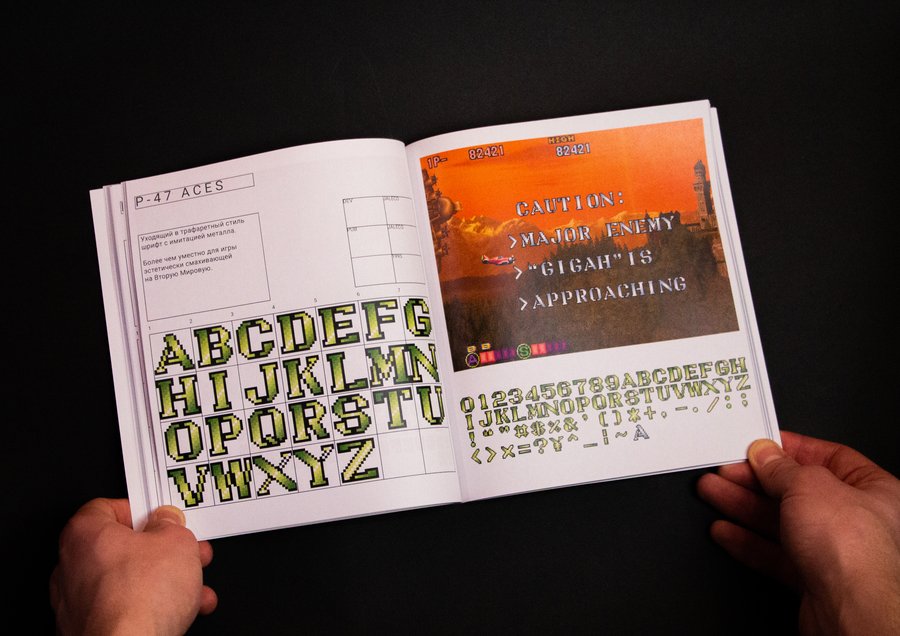 P-47 ACES
DEV
JALECO
PUB
JALECO
1995
Уходящий в трафаретный стиль
шрифт с имитацией металла.
Более чем уместно для игры
эстетически смахивающей
на Вторую Мировую.
1 2 3 4 5 6 7
ABCDEFG
HIJKLMN
OPQRSTU
VWXYZ
1P- 82421
HIGH
82421
CAUTION:
>MAJOR ENEMY
>"GIGAH"IS
>APPROACHING
0123456789ABCDEFGH
IJKLMNOPQRSTUVWXYZ
!“”#$%&'()*+,-./:;
<>×=?Y^_|~A